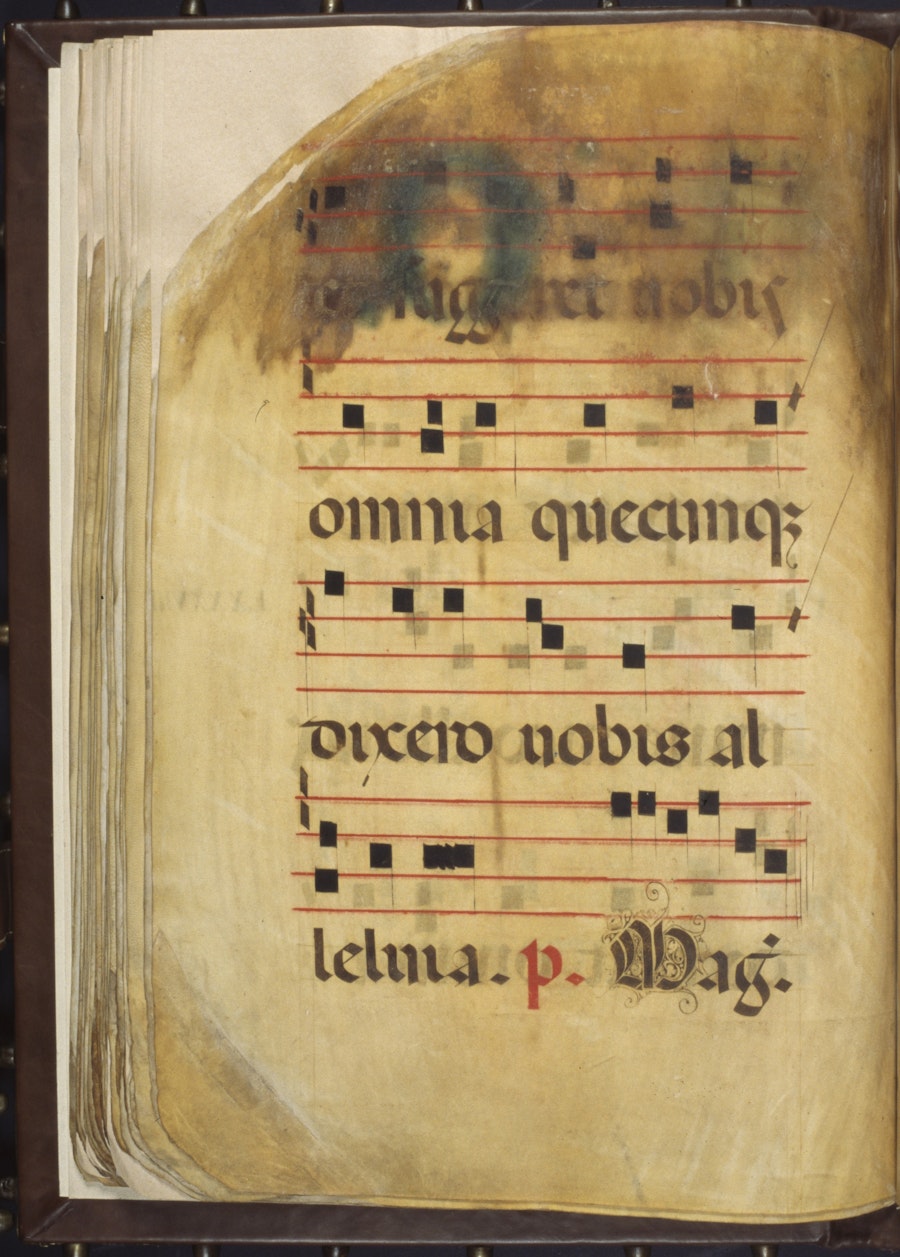 et suggeret vobis
omnia quecunqꝫ
dixero vobis al
leluia. p. Mag̈.